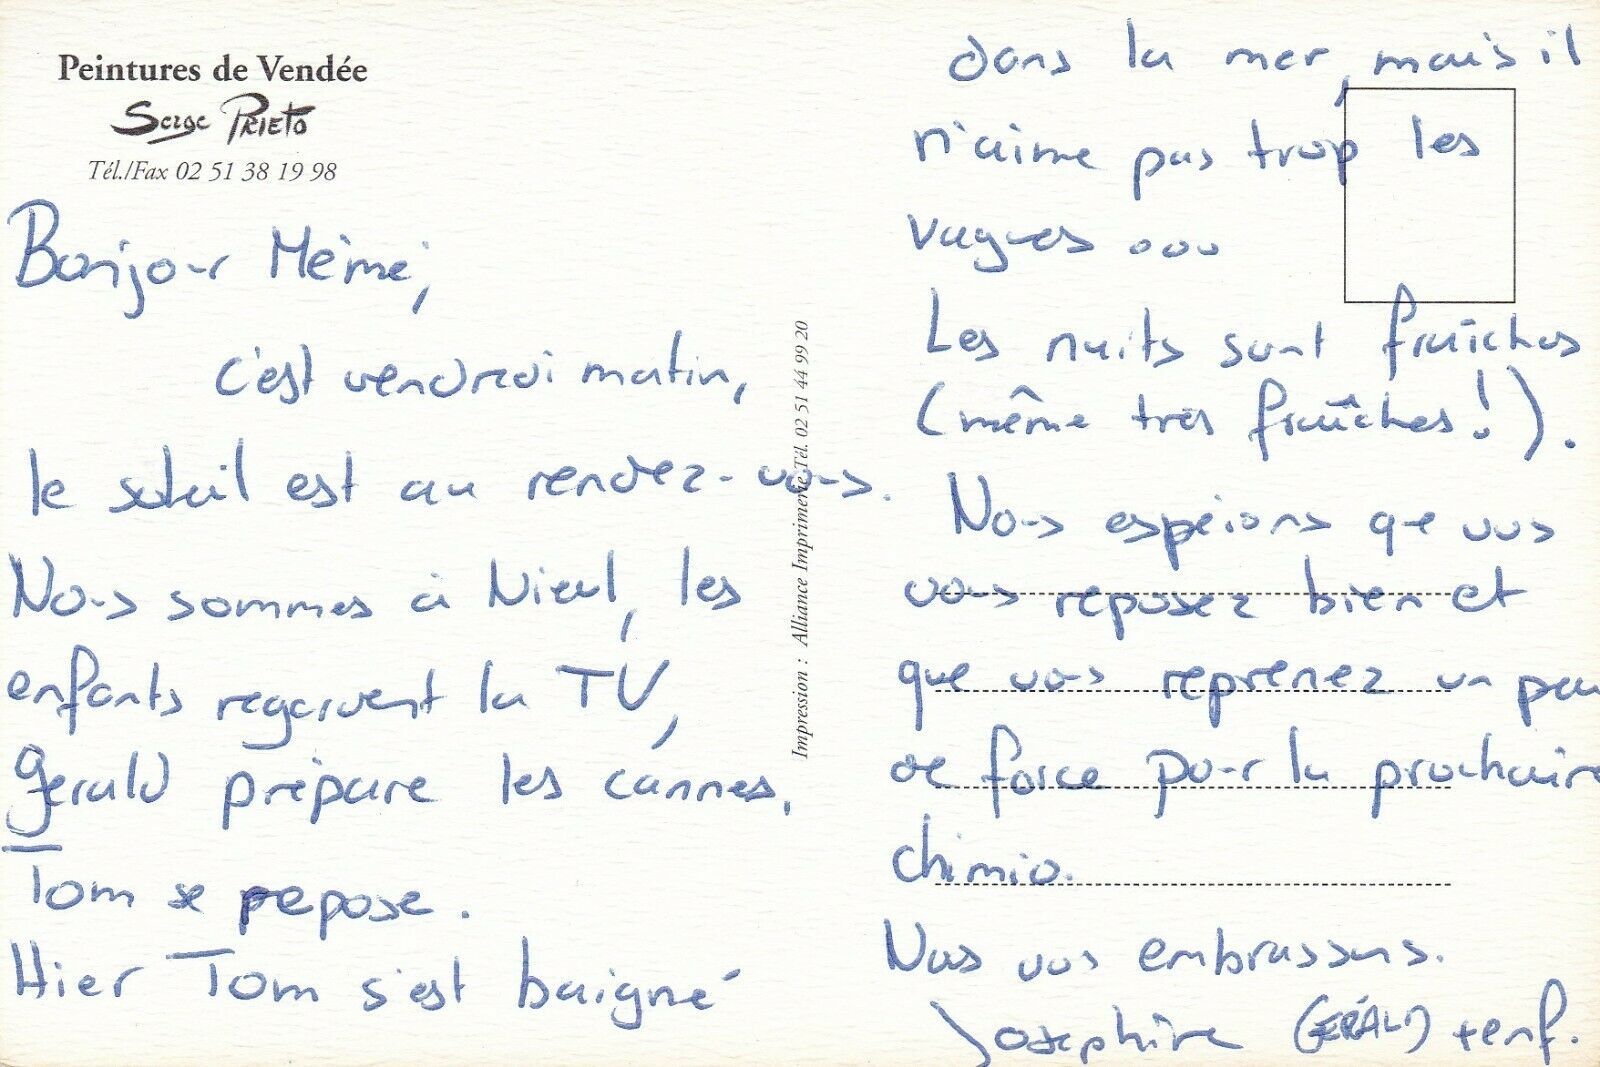 Peintures de Vendée
Serge PRIETO
Tél./Fax 02 51 38 19 98
Bonjour Mémé,
c'est vendredi matin,
le soleil est au rendez-vous.
Nous sommes à Nieul, les
enfants regardent la TV,
Gérald prépare les cannes,
Tom se repose.
Hier Tom s'est baigné
Impression : Alliance Imprimerie Tél. 02 51 44 99 20
dans la mer, mais il
n'aime pas trop les
vagues ...
Les nuits sont fraîches
(même très fraîches !).
Nous espérons que vous
vous reposez bien et
que vous reprenez un peu
de force pour la prochaine
chimio.
Nous vous embrassons.
Josephine (GÉRALD) + enf.